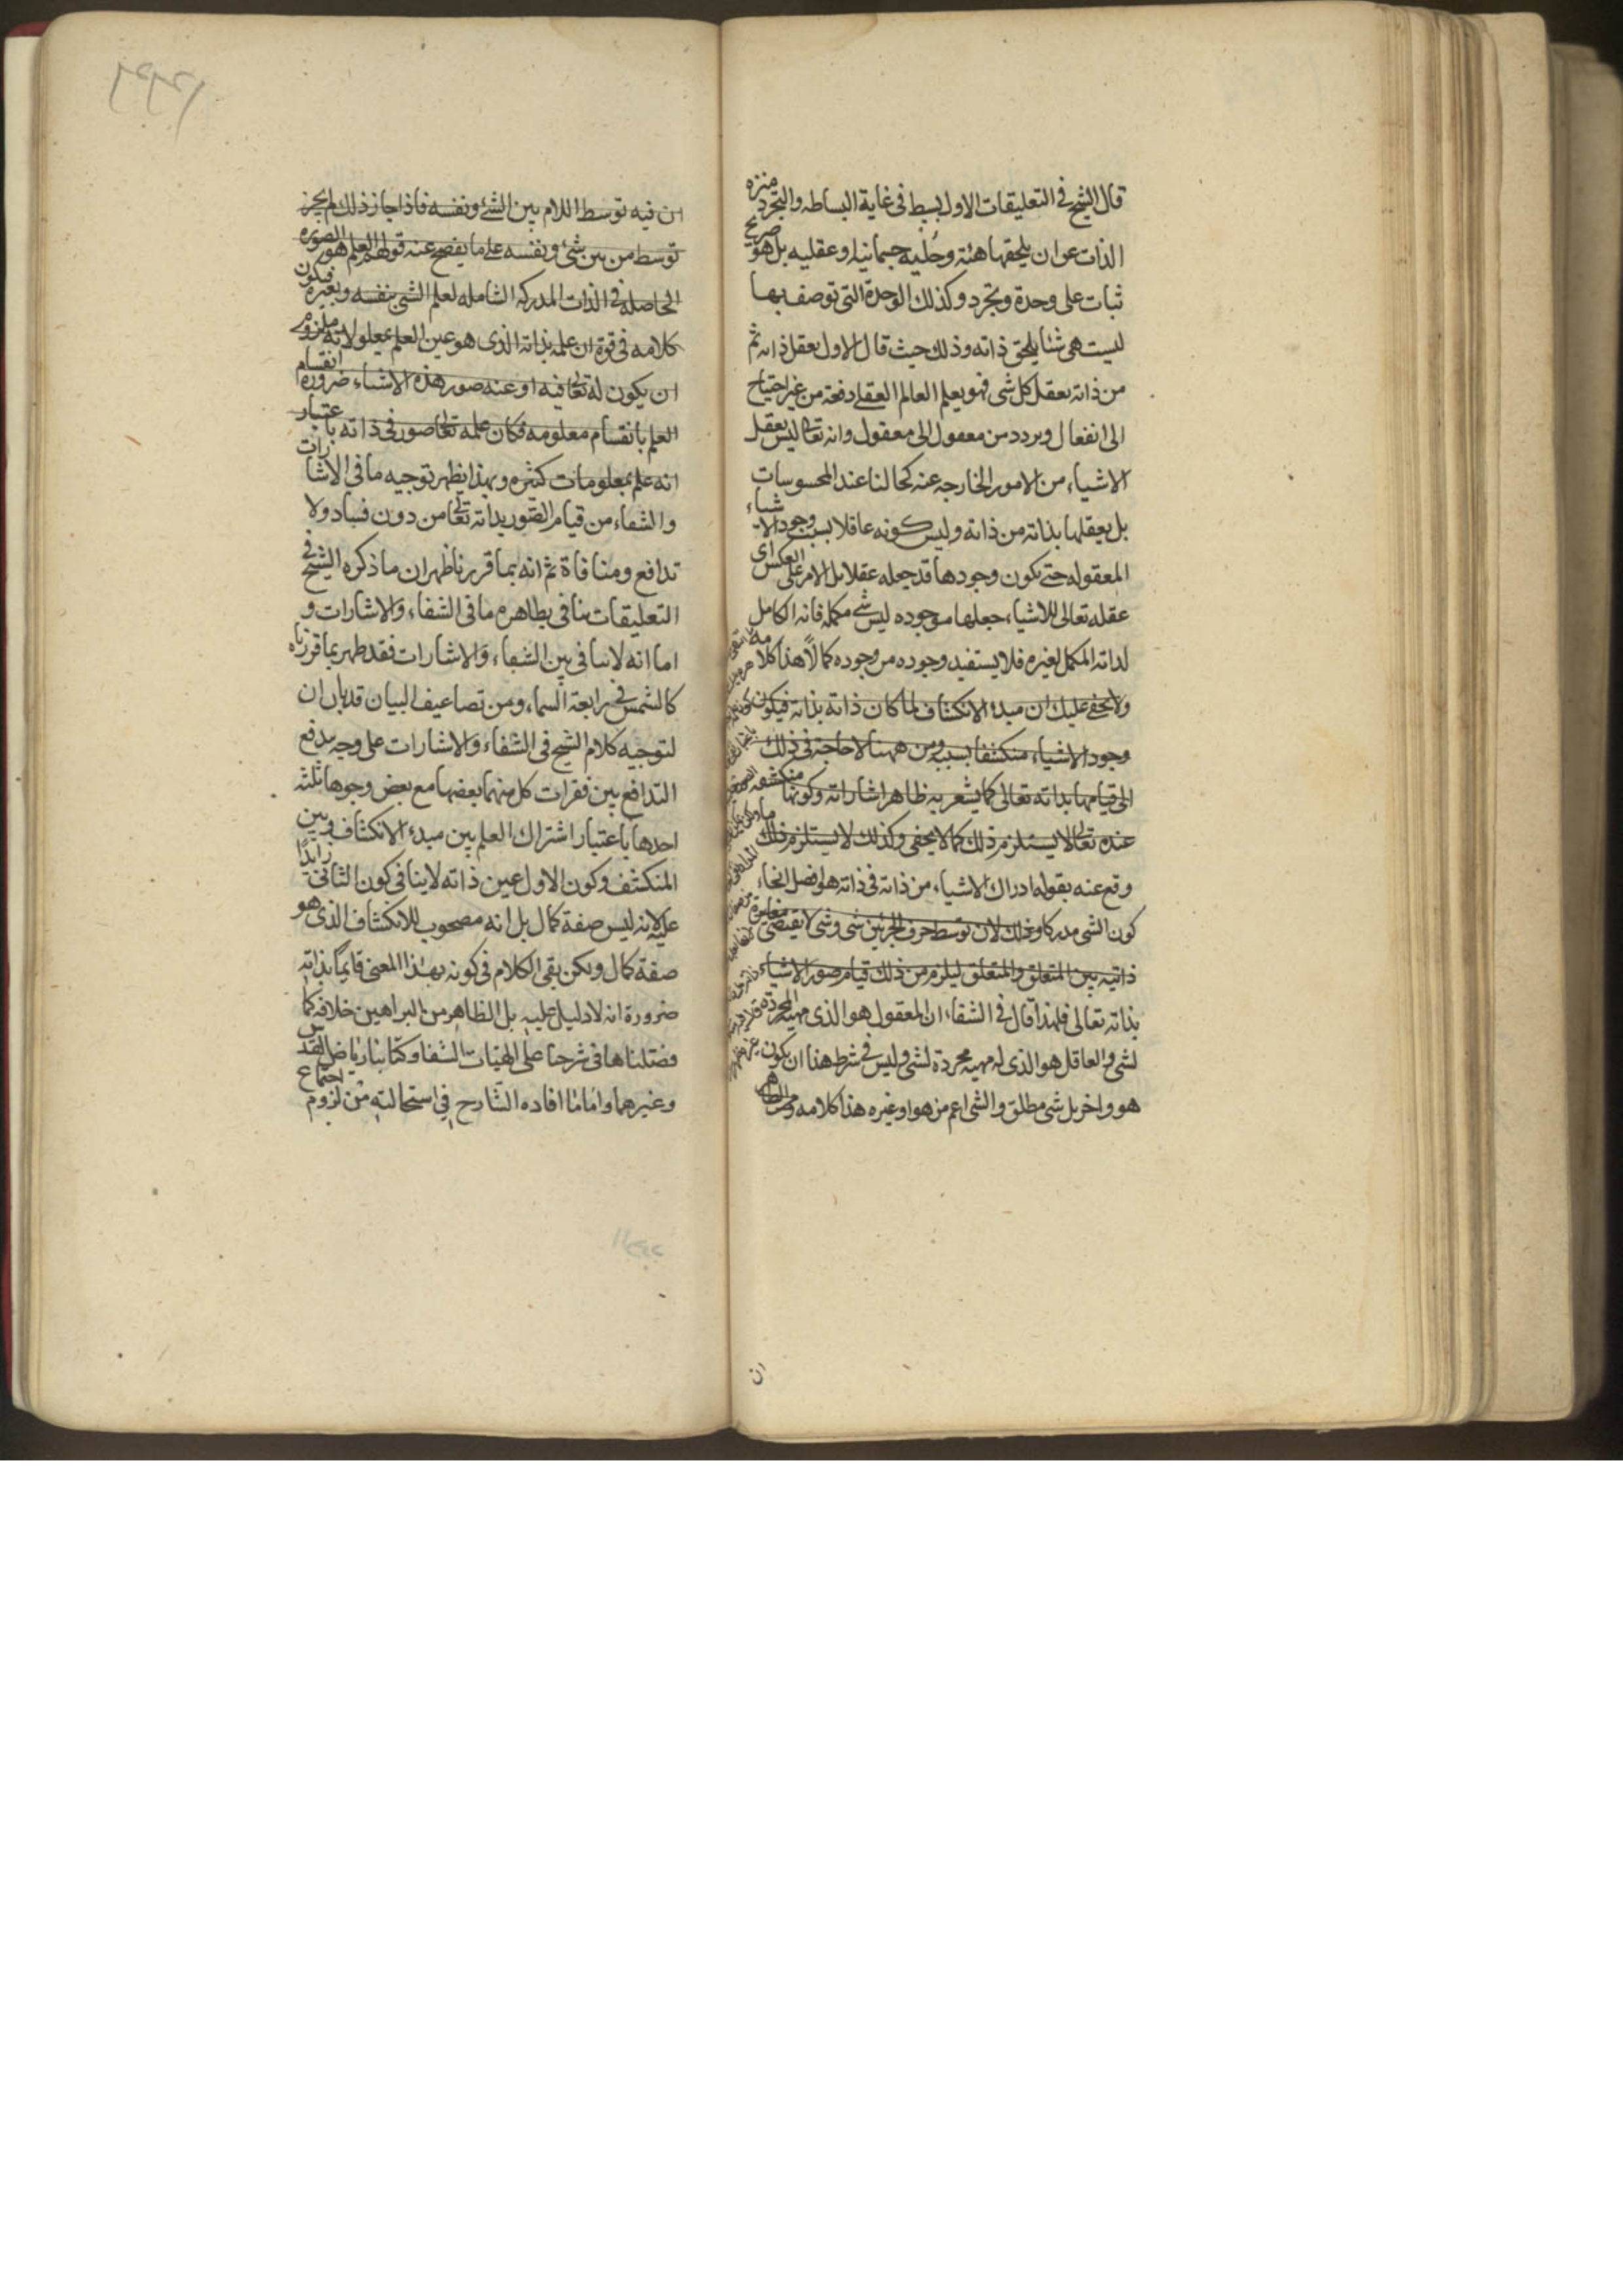 قال الشيخ في التعليقات الاول بسيط في غاية البساطه والتجرد منزه
الذات عن ان يلحقها هيئة وحلية جسمانية او عقليه بل هو صريح
ثبات على وحدة وتجرد وكذلك الوحدة التى توصف بها
ليست هى شيئا يلحق ذاته وذلك حيث قال الاول يعقل ذاته ثم
من ذاته يعقل كل شى فهو يعلم العالم العقلى دفعة من غير احتياج
الى انفعال وتردد من معقول الى معقول وانه تعالى ليس يعقل
الاشياء من الامور الخارجه عنه كحالنا عند المحسوسات
بل يعقلها بذاته من ذاته وليس كونه عاقلا بسبب وجود الاشياء
المعقوله حتى يكون وجودها قد جعله عقلا بل الامر على العكس اى
عقله تعالى للاشياء جعلها موجوده ليس شى مكمله فانه الكامل
لذاته المكمل لغيره فلا يستفيد وجوده من وجوده كمالاً هذا كلامه
ولا يخفى عليك ان مبدء الانكشاف لما كان ذاته بذاته فيكون
وجود الاشياء منكشفا بسببه ومن ههنا لا حاجة فى ذلك
الى قيامها بذاته تعالى كما يشعر به ظاهر اشاراته وكونها منكشفه
عنده تعالى لا يستلزم ذلك كما لا يخفى وكذلك لا يستلزم ذلك ما
وقع عنه بقوله ادراك الاشياء من ذاته فى ذاته هو افضل انحاء
كون الشى مدركا وذلك لان توسط حرف الجر بين شى وشى لا يقتضى مغايرة
ذاتيه بين المتعلق والمتعلق ليلزم من ذلك قيام صور الاشياء
بذاته تعالى فلهذا قال فى الشفاء ان المعقول هو الذى مهيته المجردة
لشى والعاقل هو الذى له مهيه مجردة لشى وليس فى شرط هذا ان يكون
هو واخر بل شى مطلق والشى اعم من هو او غيره هذا كلامه ومن الظاهر
ان
ان فيه توسط اللام بين الشئ ونفسه فاذا جاز ذلك لم يجز
توسط من بين شئ ونفسه على ما يفصح عنه قولهم العلم هو الصوره
الحاصله فى الذات المدركه الشامله لعلم الشئ بنفسه وبغيره فيكون
كلامه فى قوة ان علمه بذاته الذى هو عين العلم بمعلولاته ملزوم
ان يكون له تعالى فيه او عنه صور هذه الاشياء ضرورة انقسام
العلم بانقسام معلومه فكان علمه تعالى صور فى ذاته باعتبار
انه علم بمعلومات كثيره وبهذا يظهر توجيه ما فى الاشارات
والشفاء من قيام الصور بذاته تعالى من دون فساد ولا
تدافع ومنافاة ثم انه بما قررنا ظهر ان ما ذكره الشيخ فى
التعليقات ينافى بظاهره ما فى الشفاء والاشارات و
اما انه لا ينافى بين الشفاء والاشارات فقد ظهر بما قررناه
كالشمس فى رابعة السماء ومن تضاعيف البيان قد بان ان
لتوجيه كلام الشيخ فى الشفاء والاشارات على وجه يدفع
التدافع بين فقرات كل منهما بعضها مع بعض وجوها ثلثه
احدها باعتبار اشتراك العلم بين مبدء الانكشاف وبين
المنكشف وكون الاول عين ذاته لا ينافى كون الثانى زايداً
عليه لانه ليس صفة كمال بل انه مصحوب للانكشاف الذى هو
صفة كمال ولكن بقى الكلام فى كونه بهذا المعنى قايماً بذاته
ضرورة انه لا دليل عليه بل الظاهر من البراهين خلافه كما
فصلناها فى شرحنا على الهيات الشفا وكتابنا رياض القدس
وغيرهما واما ما افاده الشارح فى استحالته من لزوم اجتماع